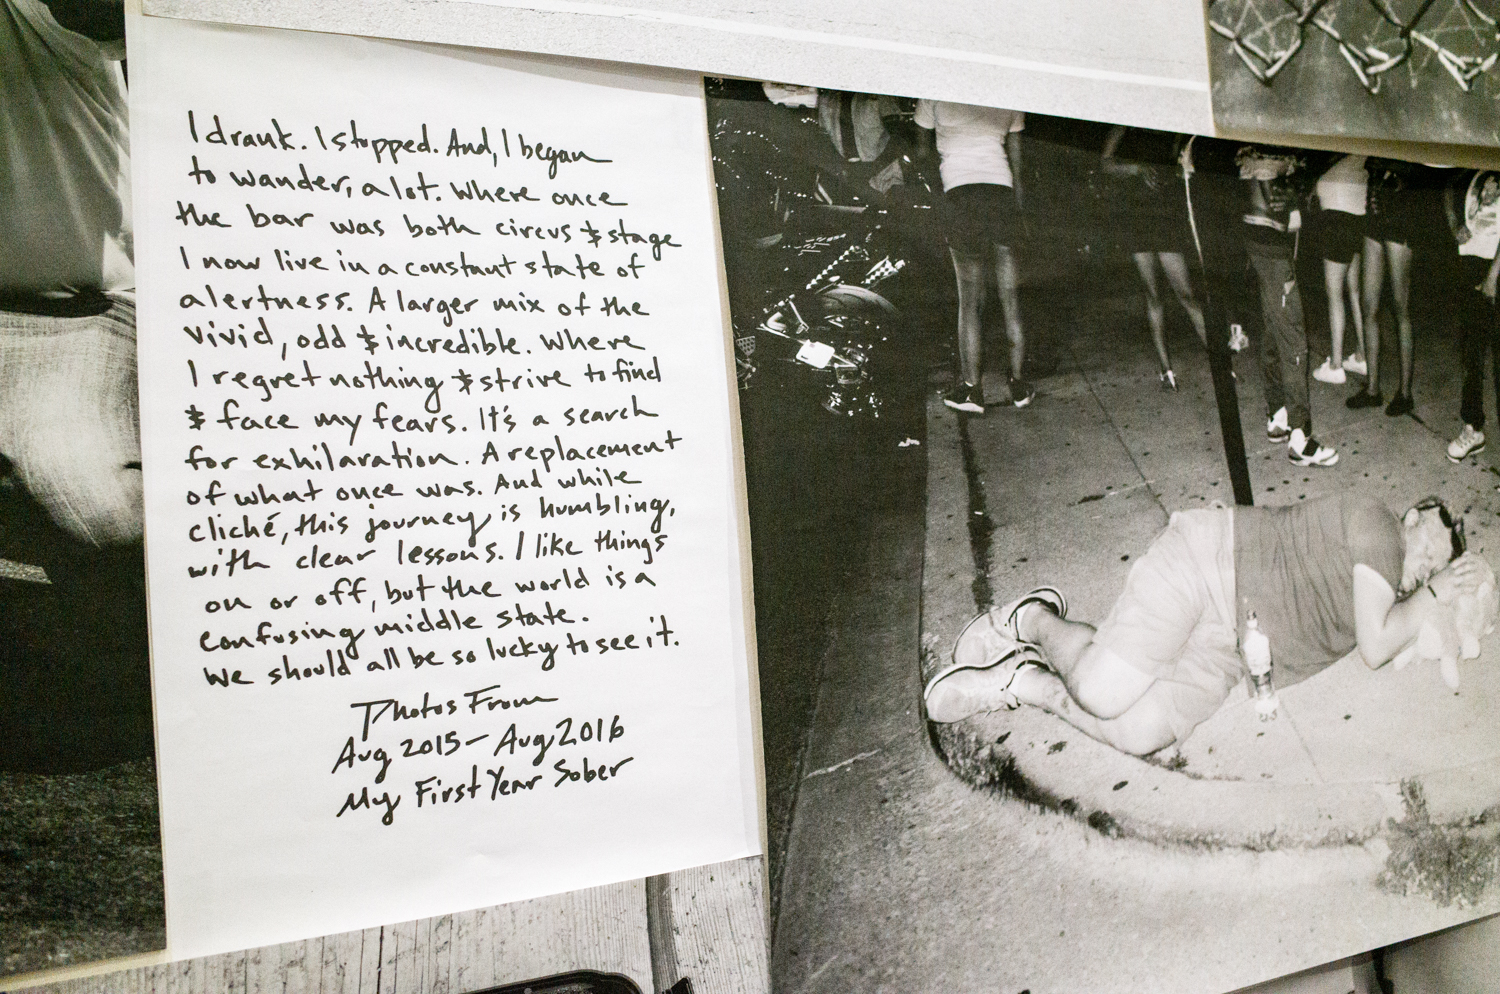 I drank. I stopped. And, I began
to wander, a lot. Where once
the bar was both circus & stage
I now live in a constant state of
alertness. A larger mix of the
vivid, odd & incredible. Where
I regret nothing & strive to find
& face my fears. It's a search
for exhilaration. A replacement
of what once was. And while
cliché, this journey is humbling,
with clear lessons. I like things
on or off, but the world is a
confusing middle state.
We should all be so lucky to see it.
Photos From
Aug 2015 - Aug 2016
My First Year Sober